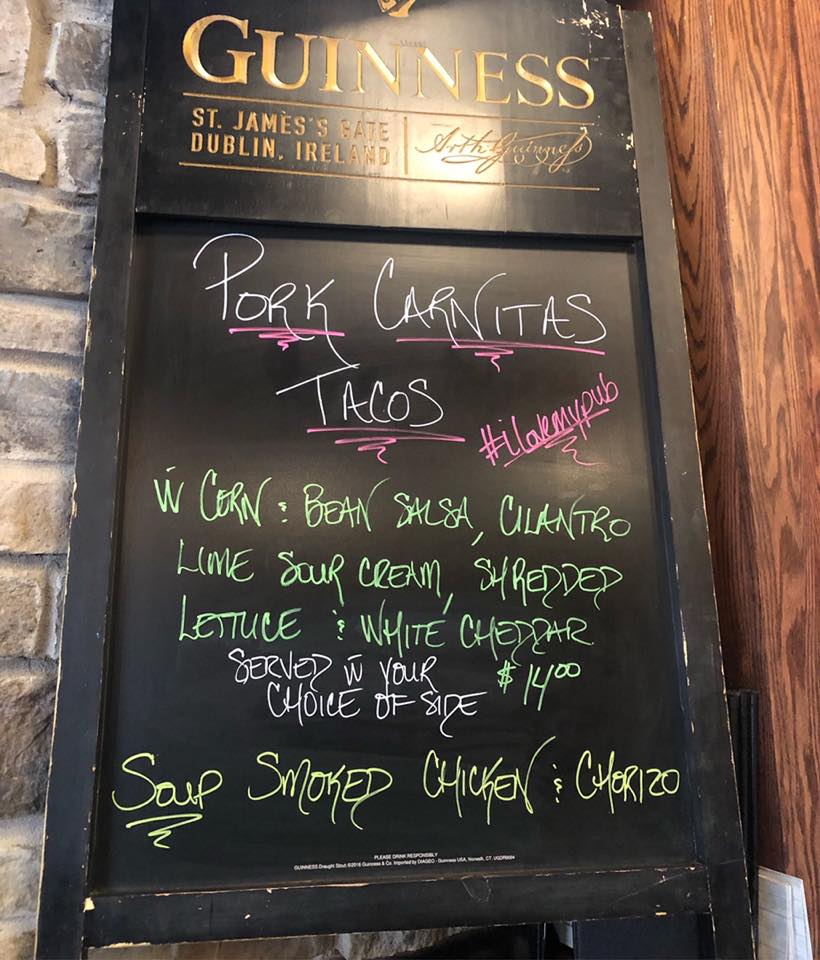 GUINNESS
ST. JAMES'S GATE
DUBLIN, IRELAND
Arth Guinness
PORK CARNITAS
TACOS
#ilovemypub
W CORN & BEAN SALSA, CILANTRO
LIME SOUR CREAM, SHREDDED
LETTUCE & WHITE CHEDDAR
SERVED W YOUR
CHOICE OF SIDE
$14.00
SOUP SMOKED CHICKEN & CHORIZO
PLEASE DRINK RESPONSIBLY
GUINNESS Draught Stout ©2016 Guinness & Co. Imported by DIAGEO - Guinness USA, Norwalk, CT.